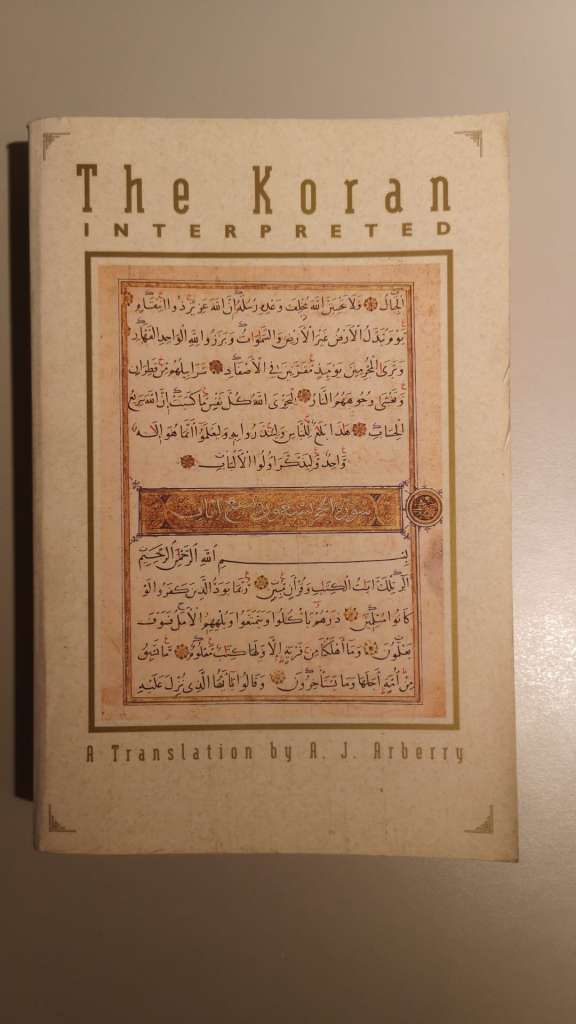 The Koran
INTERPRETED
الجبال ولا تحسبن الله مخلف وعده رسله ان الله عزيز ذو انتقام
يوم تبدل الارض غير الارض والسموات وبرزوا لله الواحد القهار
وترى المجرمين يومئذ مقرنين في الاصفاد سرابيلهم من قطران
وتغشى وجوههم النار ليجزى الله كل نفس ما كسبت ان الله سريع
الحساب هذا بلاغ للناس ولينذروا به وليعلموا انما هو اله
واحد وليذكر اولوا الالباب
سورة الحجر تسعون وتسع ايات
بسم الله الرحمن الرحيم
الر تلك ايت الكتب وقران مبين ربما يود الذين كفروا لو
كانوا مسلمين ذرهم ياكلوا ويتمتعوا ويلههم الامل فسوف
يعلمون وما اهلكنا من قرية الا ولها كتب معلوم ما تسبق
من امة اجلها وما يستاخرون وقالوا يايها الذي نزل عليه
A Translation by A. J. Arberry